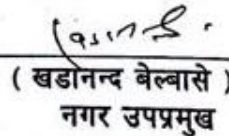 ( खडानन्द बेल्बासे )
नगर उपप्रमुख